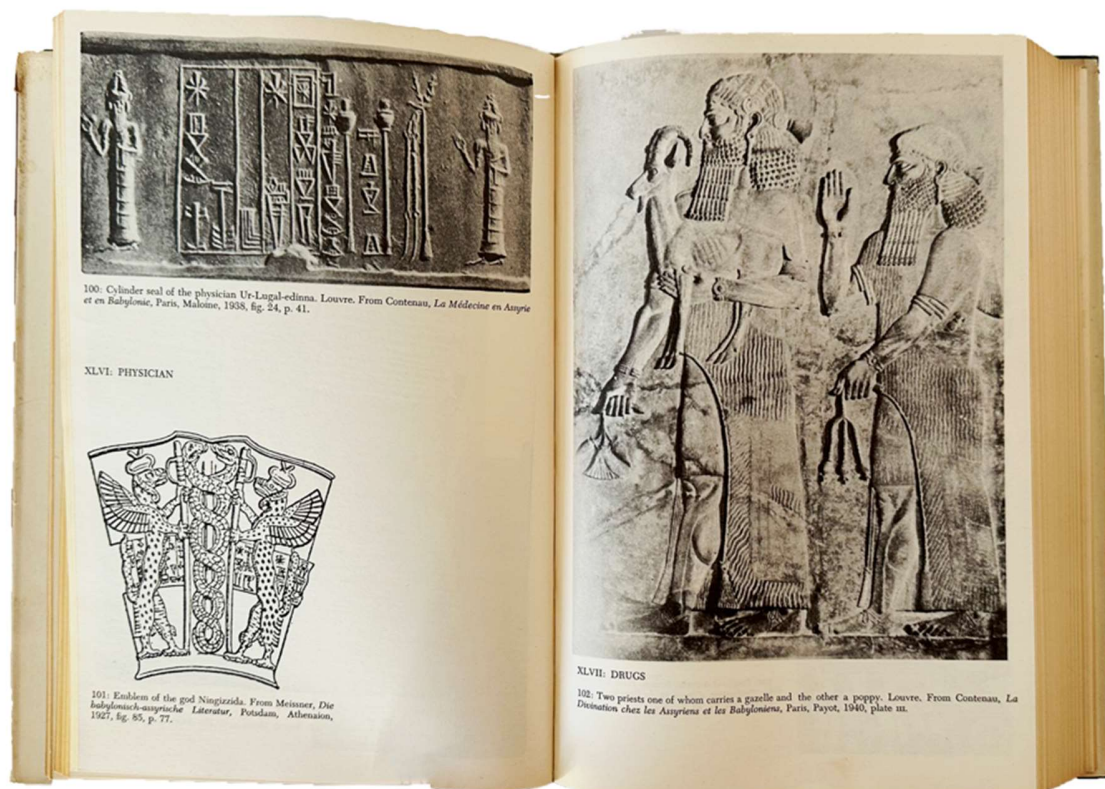 100: Cylinder seal of the physician Ur-Lugal-edinna. Louvre. From Contenau, La Médecine en Assyrie
et en Babylonie, Paris, Maloine, 1938, fig. 24, p. 41.
XLVI: PHYSICIAN
101: Emblem of the god Ningizzida. From Meissner, Die
babylonisch-assyrische Literatur, Potsdam, Athenaion,
1927, fig. 85, p. 77.
XLVII: DRUGS
102: Two priests one of whom carries a gazelle and the other a poppy. Louvre. From Contenau, La
Divination chez les Assyriens et les Babyloniens, Paris, Payot, 1940, plate III.